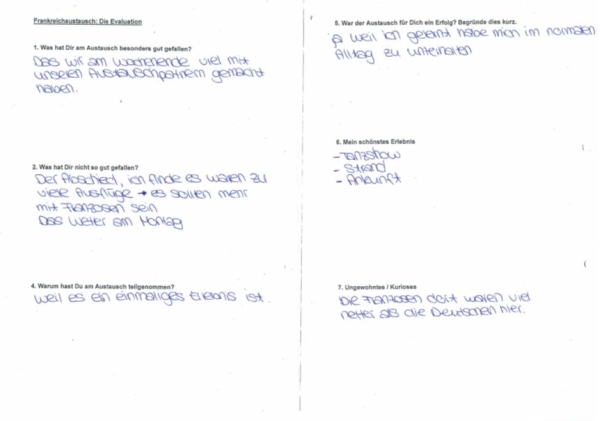 Frankreichaustausch: Die Evaluation
1. Was hat Dir am Austausch besonders gut gefallen?
Das wir am Wochenende viel mit
unseren Austauschpartnern gemacht
haben.
2. Was hat Dir nicht so gut gefallen?
Der Abschied, ich finde es waren zu
viele Ausflüge → es sollten mehr
mit Franzosen sein
Das Weter am Montag
4. Warum hast Du am Austausch teilgenommen?
Weil es ein einmaliges Erlebnis ist.
5. War der Austausch für Dich ein Erfolg? Begründe dies kurz.
weil ich gelernt habe mich im normalen
Alltag zu unterhalten
6. Mein schönstes Erlebnis
- Tanzshow
- Strand
- Ankunft
7. Ungewohntes / Kurioses
Die Franzosen dort waren viel
netter als die Deutschen hier.